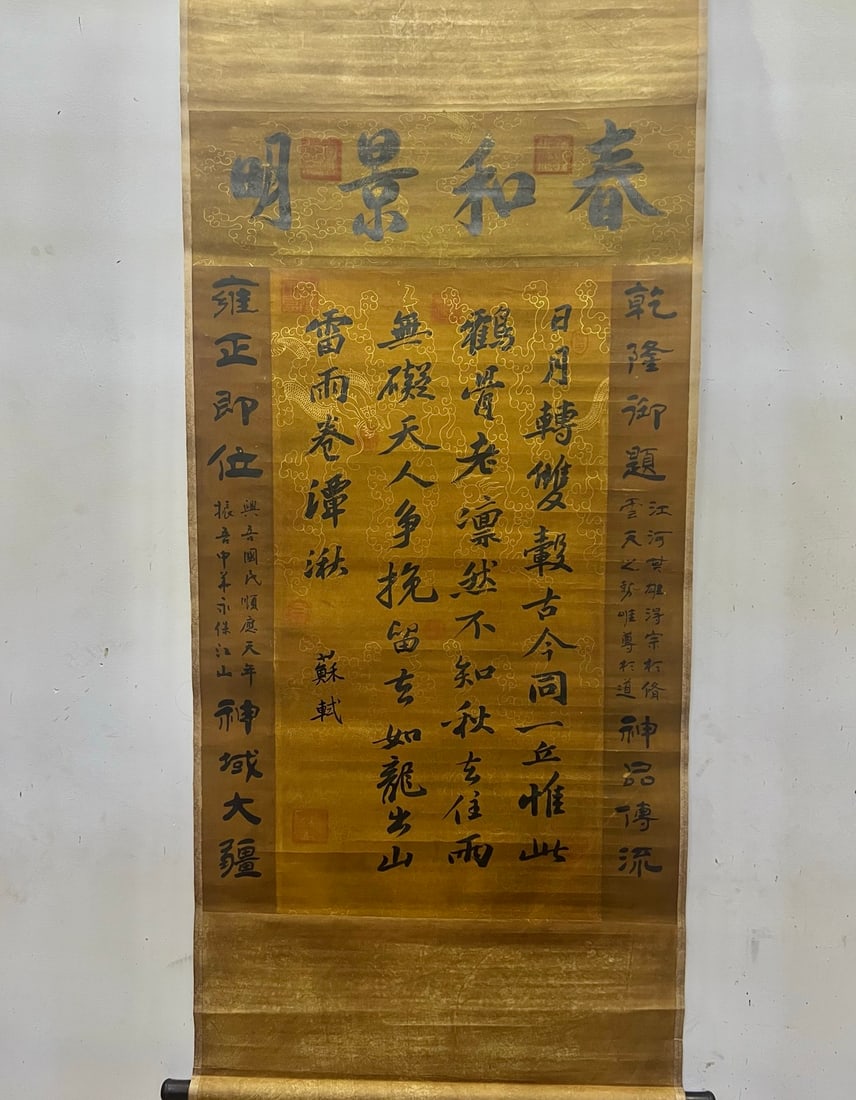 春和景明
乾隆御題
江河英雄得宗於脩
雲天之彩唯尊於道
神品傳流
日月轉雙轂古今同一丘惟此
鶴骨老凛然不知秋去住兩
無礙天人争挽留去如龍出山
雷雨卷潭湫
蘇軾
雍正即位
興吾國民順應天年
振吾中華永保江山
神域大疆